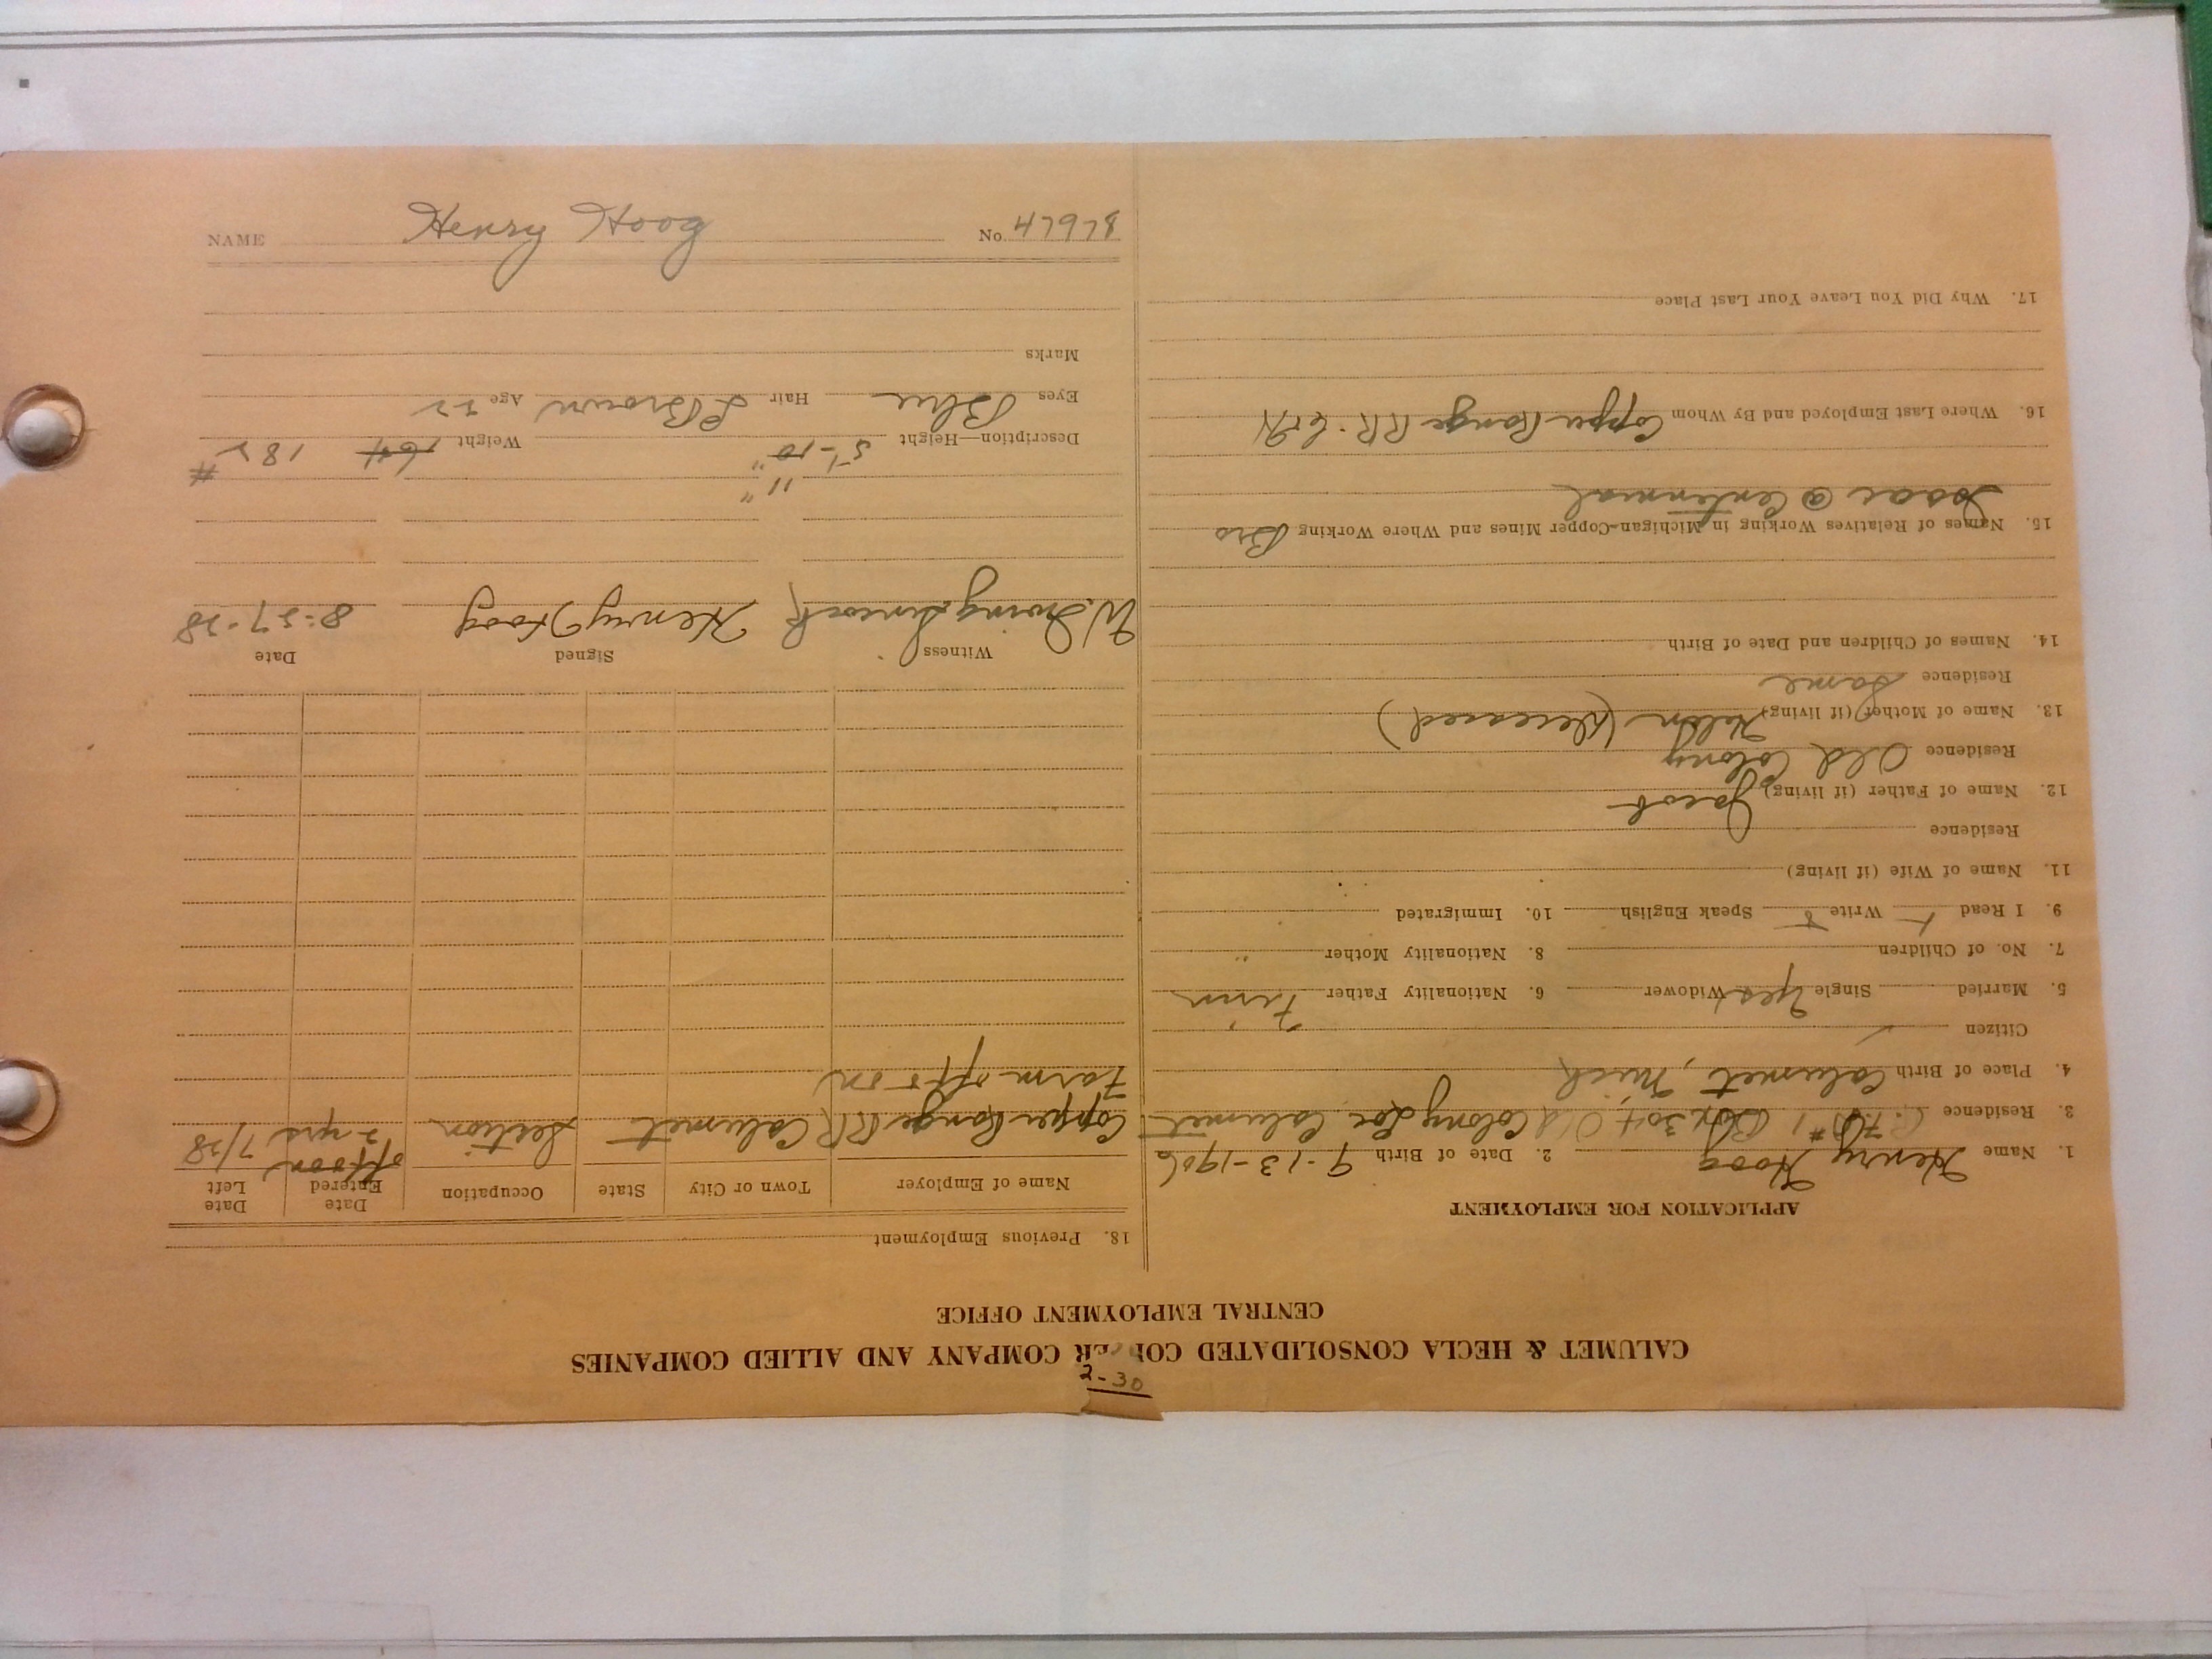 2-30
CALUMET & HECLA CONSOLIDATED COPPER COMPANY AND ALLIED COMPANIES
CENTRAL EMPLOYMENT OFFICE
APPLICATION FOR EMPLOYMENT
1. Name Henry Hoog 2. Date of Birth 9-13-1906
3. Residence R.F.D. #1 Box 304 Old Colony Loc Calumet
4. Place of Birth Calumet, Mich
Citizen ✓
5. Married Single Yes Widower 6. Nationality Father Finn
7. No. of Children 8. Nationality Mother "
9. I Read + Write + Speak English 10. Immigrated
11. Name of Wife (if living)
Residence
12. Name of Father (if living) Jacob
Residence Old Colony
13. Name of Mother (if living) (Deceased)
Residence Same
14. Names of Children and Date of Birth
15. Names of Relatives Working in Michigan-Copper Mines and Where Working Bro
Isaac @ Centennial
16. Where Last Employed and By Whom Copper Range RR.
17. Why Did You Leave Your Last Place
18. Previous Employment
Name of Employer Town or City State Occupation Date Entered Date Left
Copper Range RR Calumet Section off & on 2 yrs 7/38
Farm off & on
Witness Signed Date
W. Irving Henry Hoog 8-27-38
11"
Description—Height 5'-10" Weight 164 182 #
Eyes Blue Hair L Brown Age 32
Marks
NAME Henry Hoog No. 47978